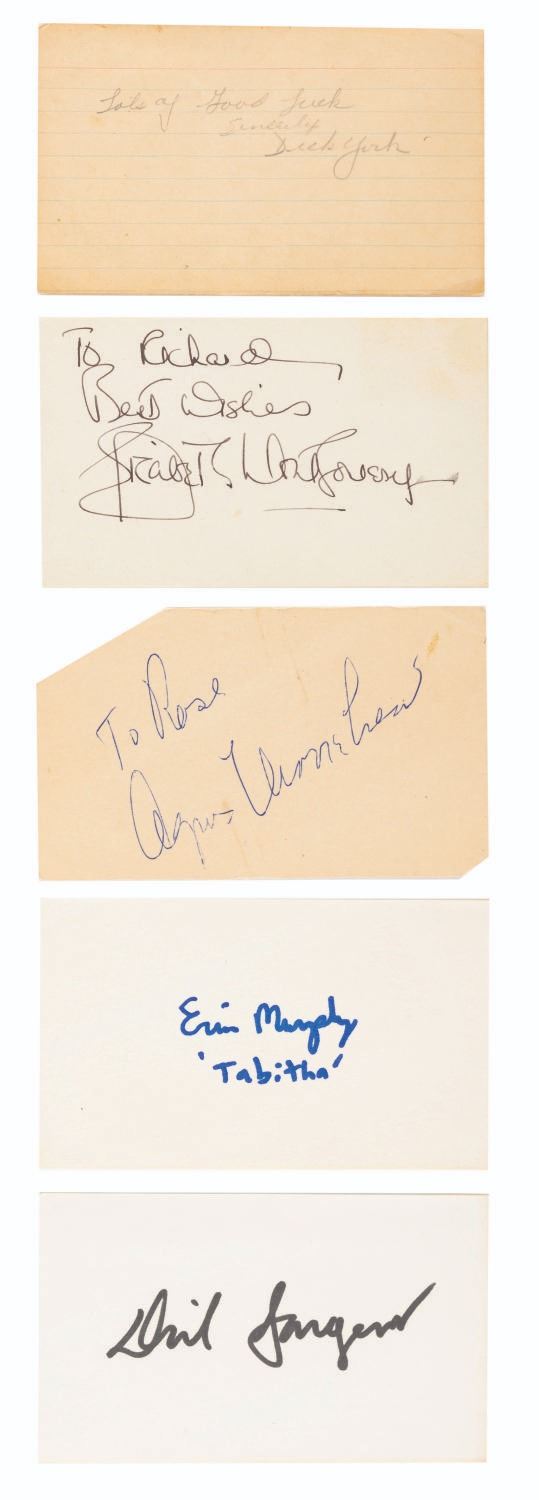 Lots of Good Luck
Sincerely
Dick York
To Richard,
Best Wishes
Elizabeth Montgomery
To Rose
Agnes Moorehead
Erin Murphy
'Tabitha'
Dick Sargent